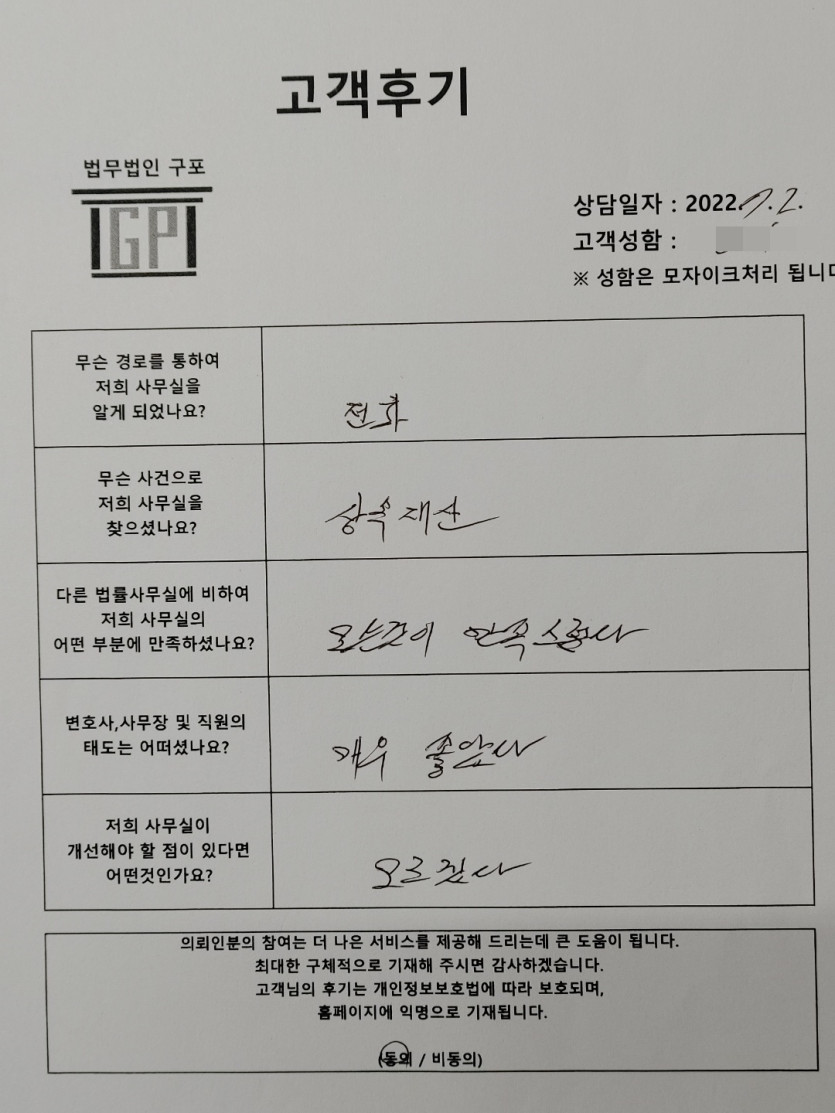 고객후기
법무법인 구포
IGPI
상담일자 : 2022. 7. 2.
고객성함 :
※ 성함은 모자이크처리 됩니다
무슨 경로를 통하여
저희 사무실을
알게 되었나요?
전화
무슨 사건으로
저희 사무실을
찾으셨나요?
상속재산
다른 법률사무실에 비하여
저희 사무실의
어떤 부분에 만족하셨나요?
모든것이 만족스럽다
변호사,사무장 및 직원의
태도는 어떠셨나요?
매우 좋았다
저희 사무실이
개선해야 할 점이 있다면
어떤것인가요?
모르겠다
의뢰인분의 참여는 더 나은 서비스를 제공해 드리는데 큰 도움이 됩니다.
최대한 구체적으로 기재해 주시면 감사하겠습니다.
고객님의 후기는 개인정보보호법에 따라 보호되며,
홈페이지에 익명으로 기재됩니다.
(동의 / 비동의)